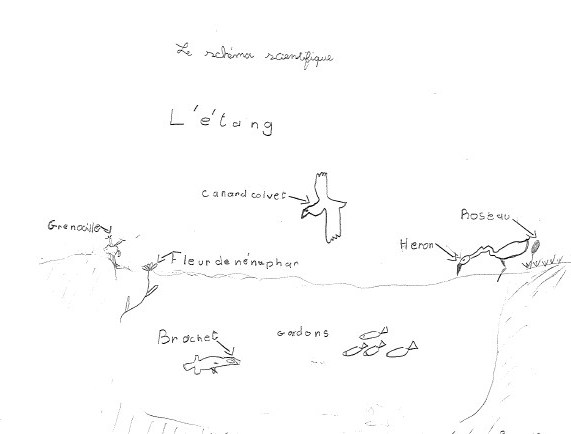 Le schéma scientifique
L'étang
Canard colvet
Roseau
Grenouille
Heron
Fleur de nénuphar
Brochet
Gardons